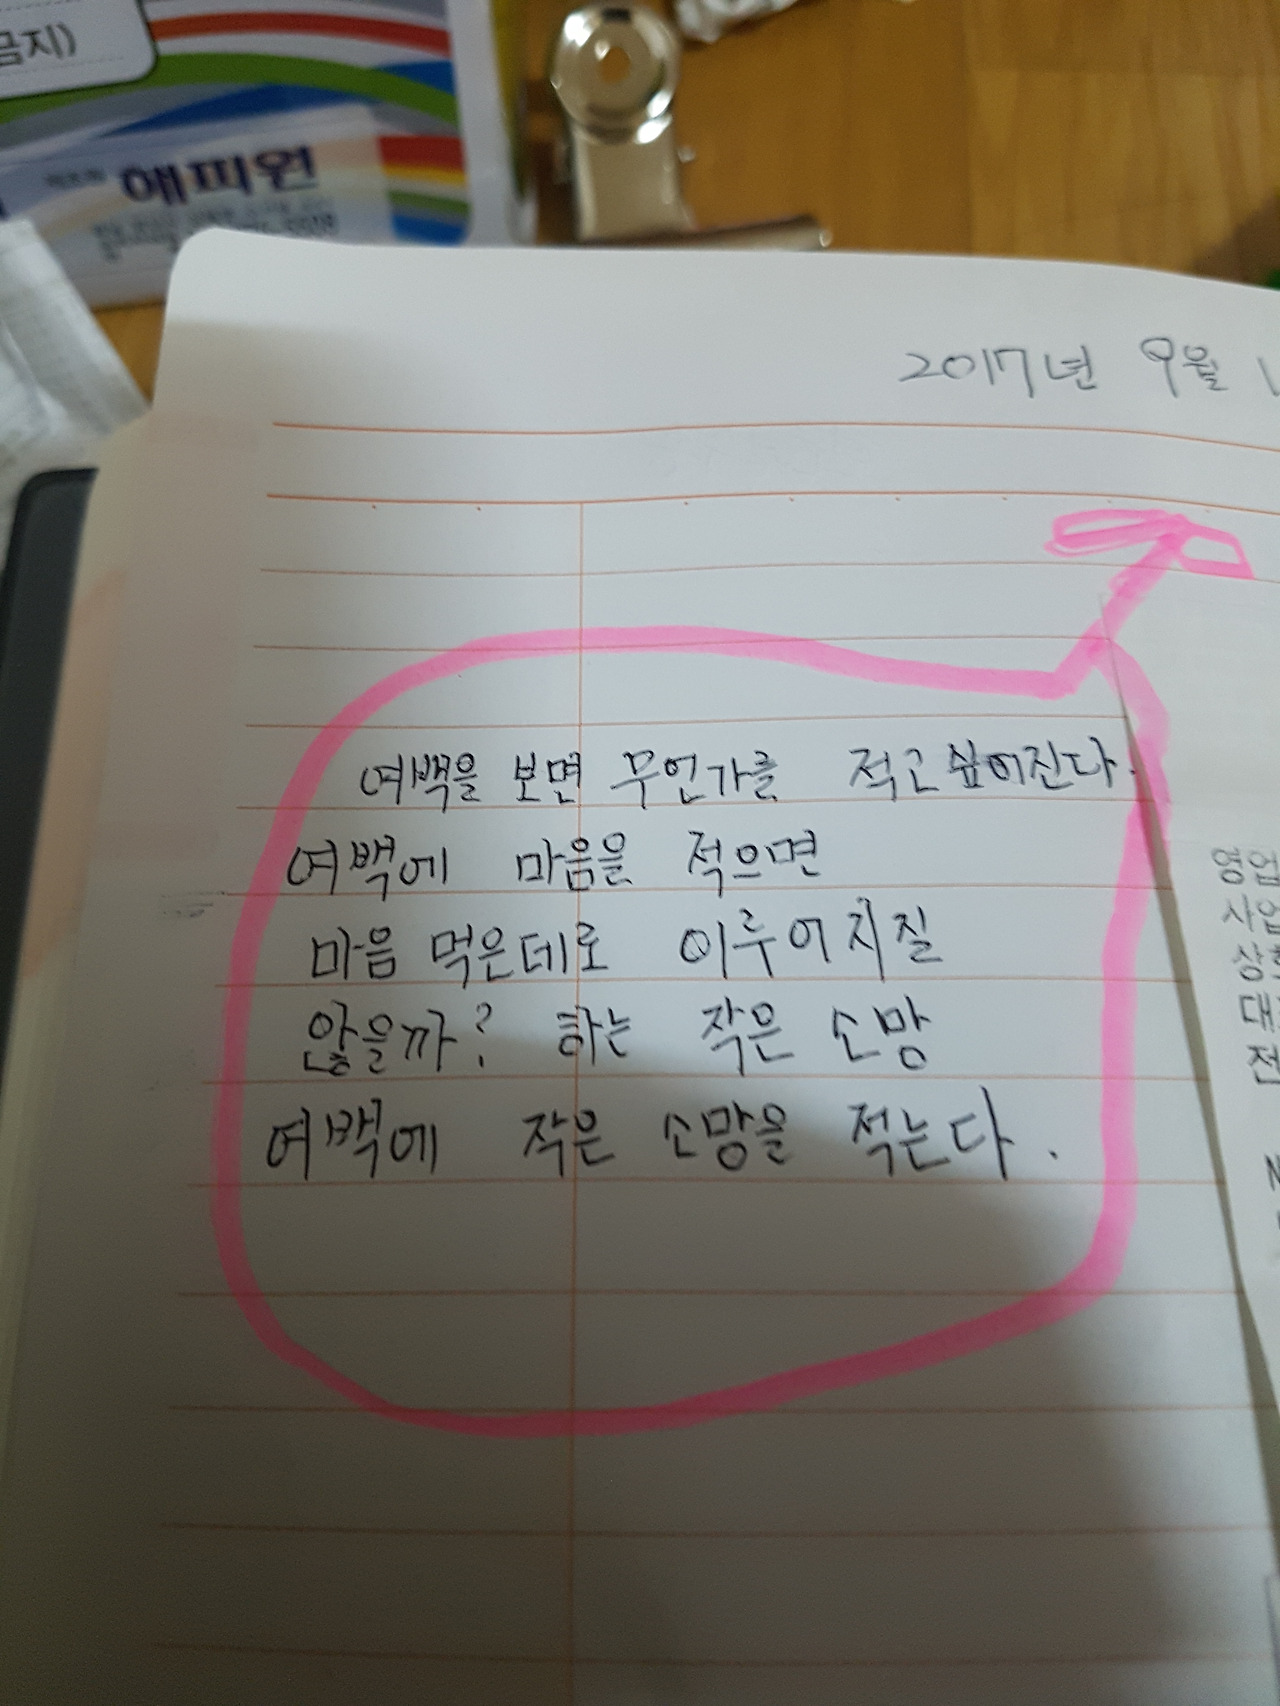 금지)
애피원
2017년 9월
여백을 보면 무언가를 적고 싶어진다.
여백에 마음을 적으면
마음 먹은데로 이루어지질
않을까? 하는 작은 소망
여백에 작은 소망을 적는다.
영업
사업
상호
대
전